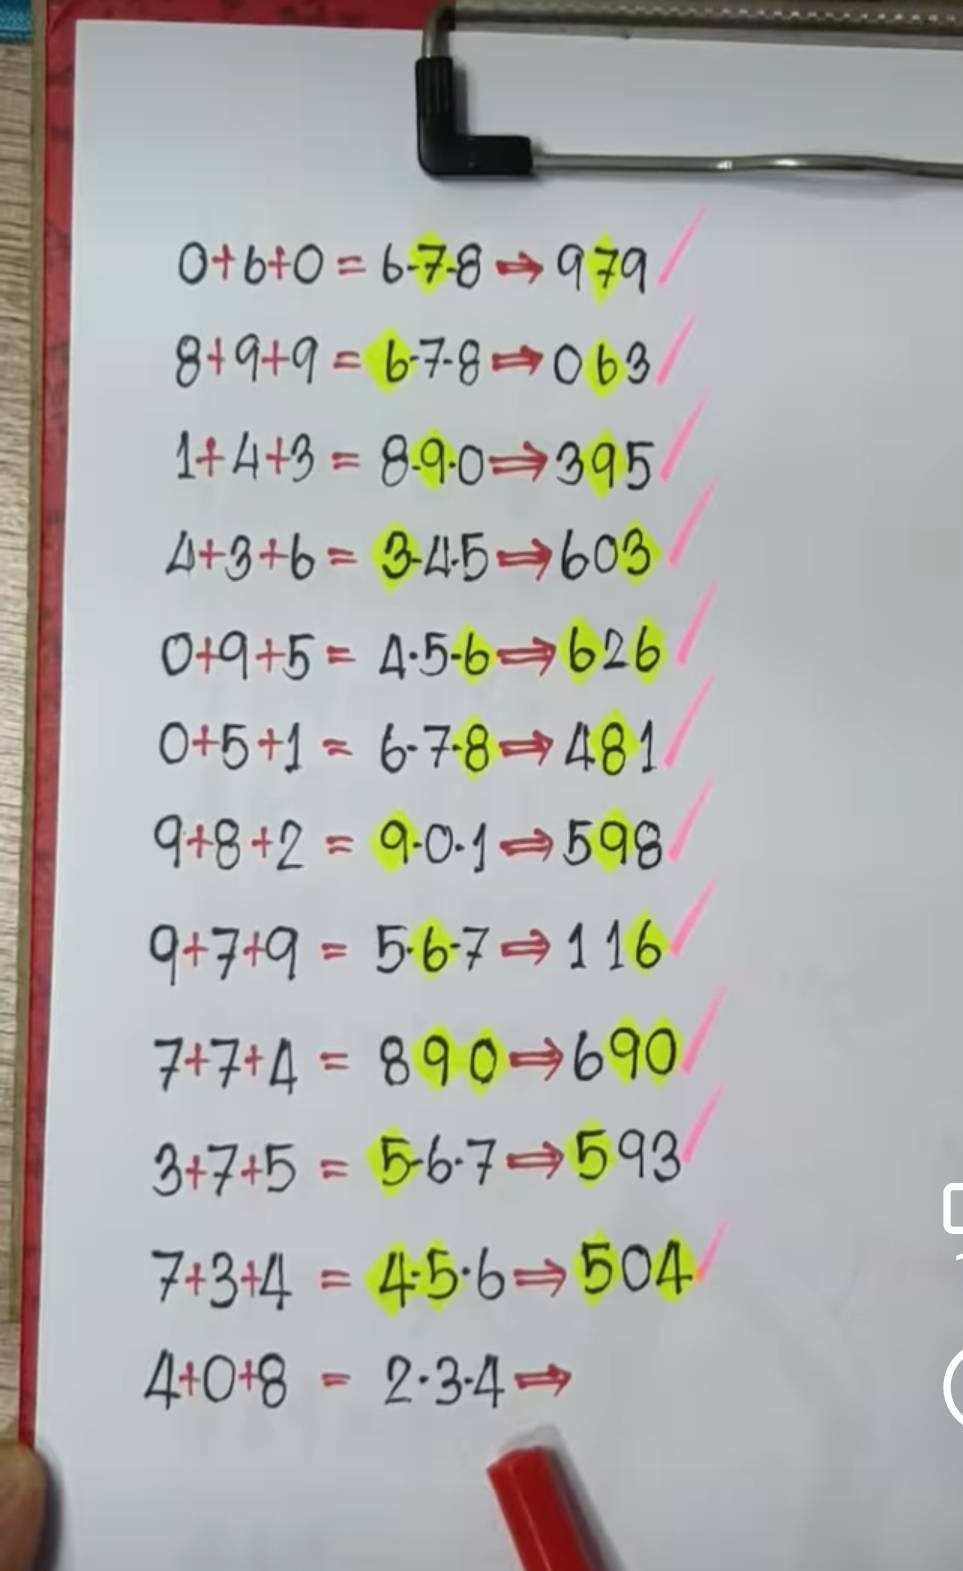 0+6+0 = 6-7-8 ⇒ 979
8+9+9 = 6-7-8 ⇒ 063
1+4+3 = 8-9·0 ⇒ 395
4+3+6 = 3-4·5 ⇒ 603
0+9+5 = 4·5-6 ⇒ 626
0+5+1 = 6·7·8 ⇒ 481
9+8+2 = 9·0·1 ⇒ 598
9+7+9 = 5·6·7 ⇒ 116
7+7+4 = 8 9 0 ⇒ 690
3+7+5 = 5-6·7 ⇒ 593
7+3+4 = 4·5·6 ⇒ 504
4+0+8 = 2·3·4 ⇒